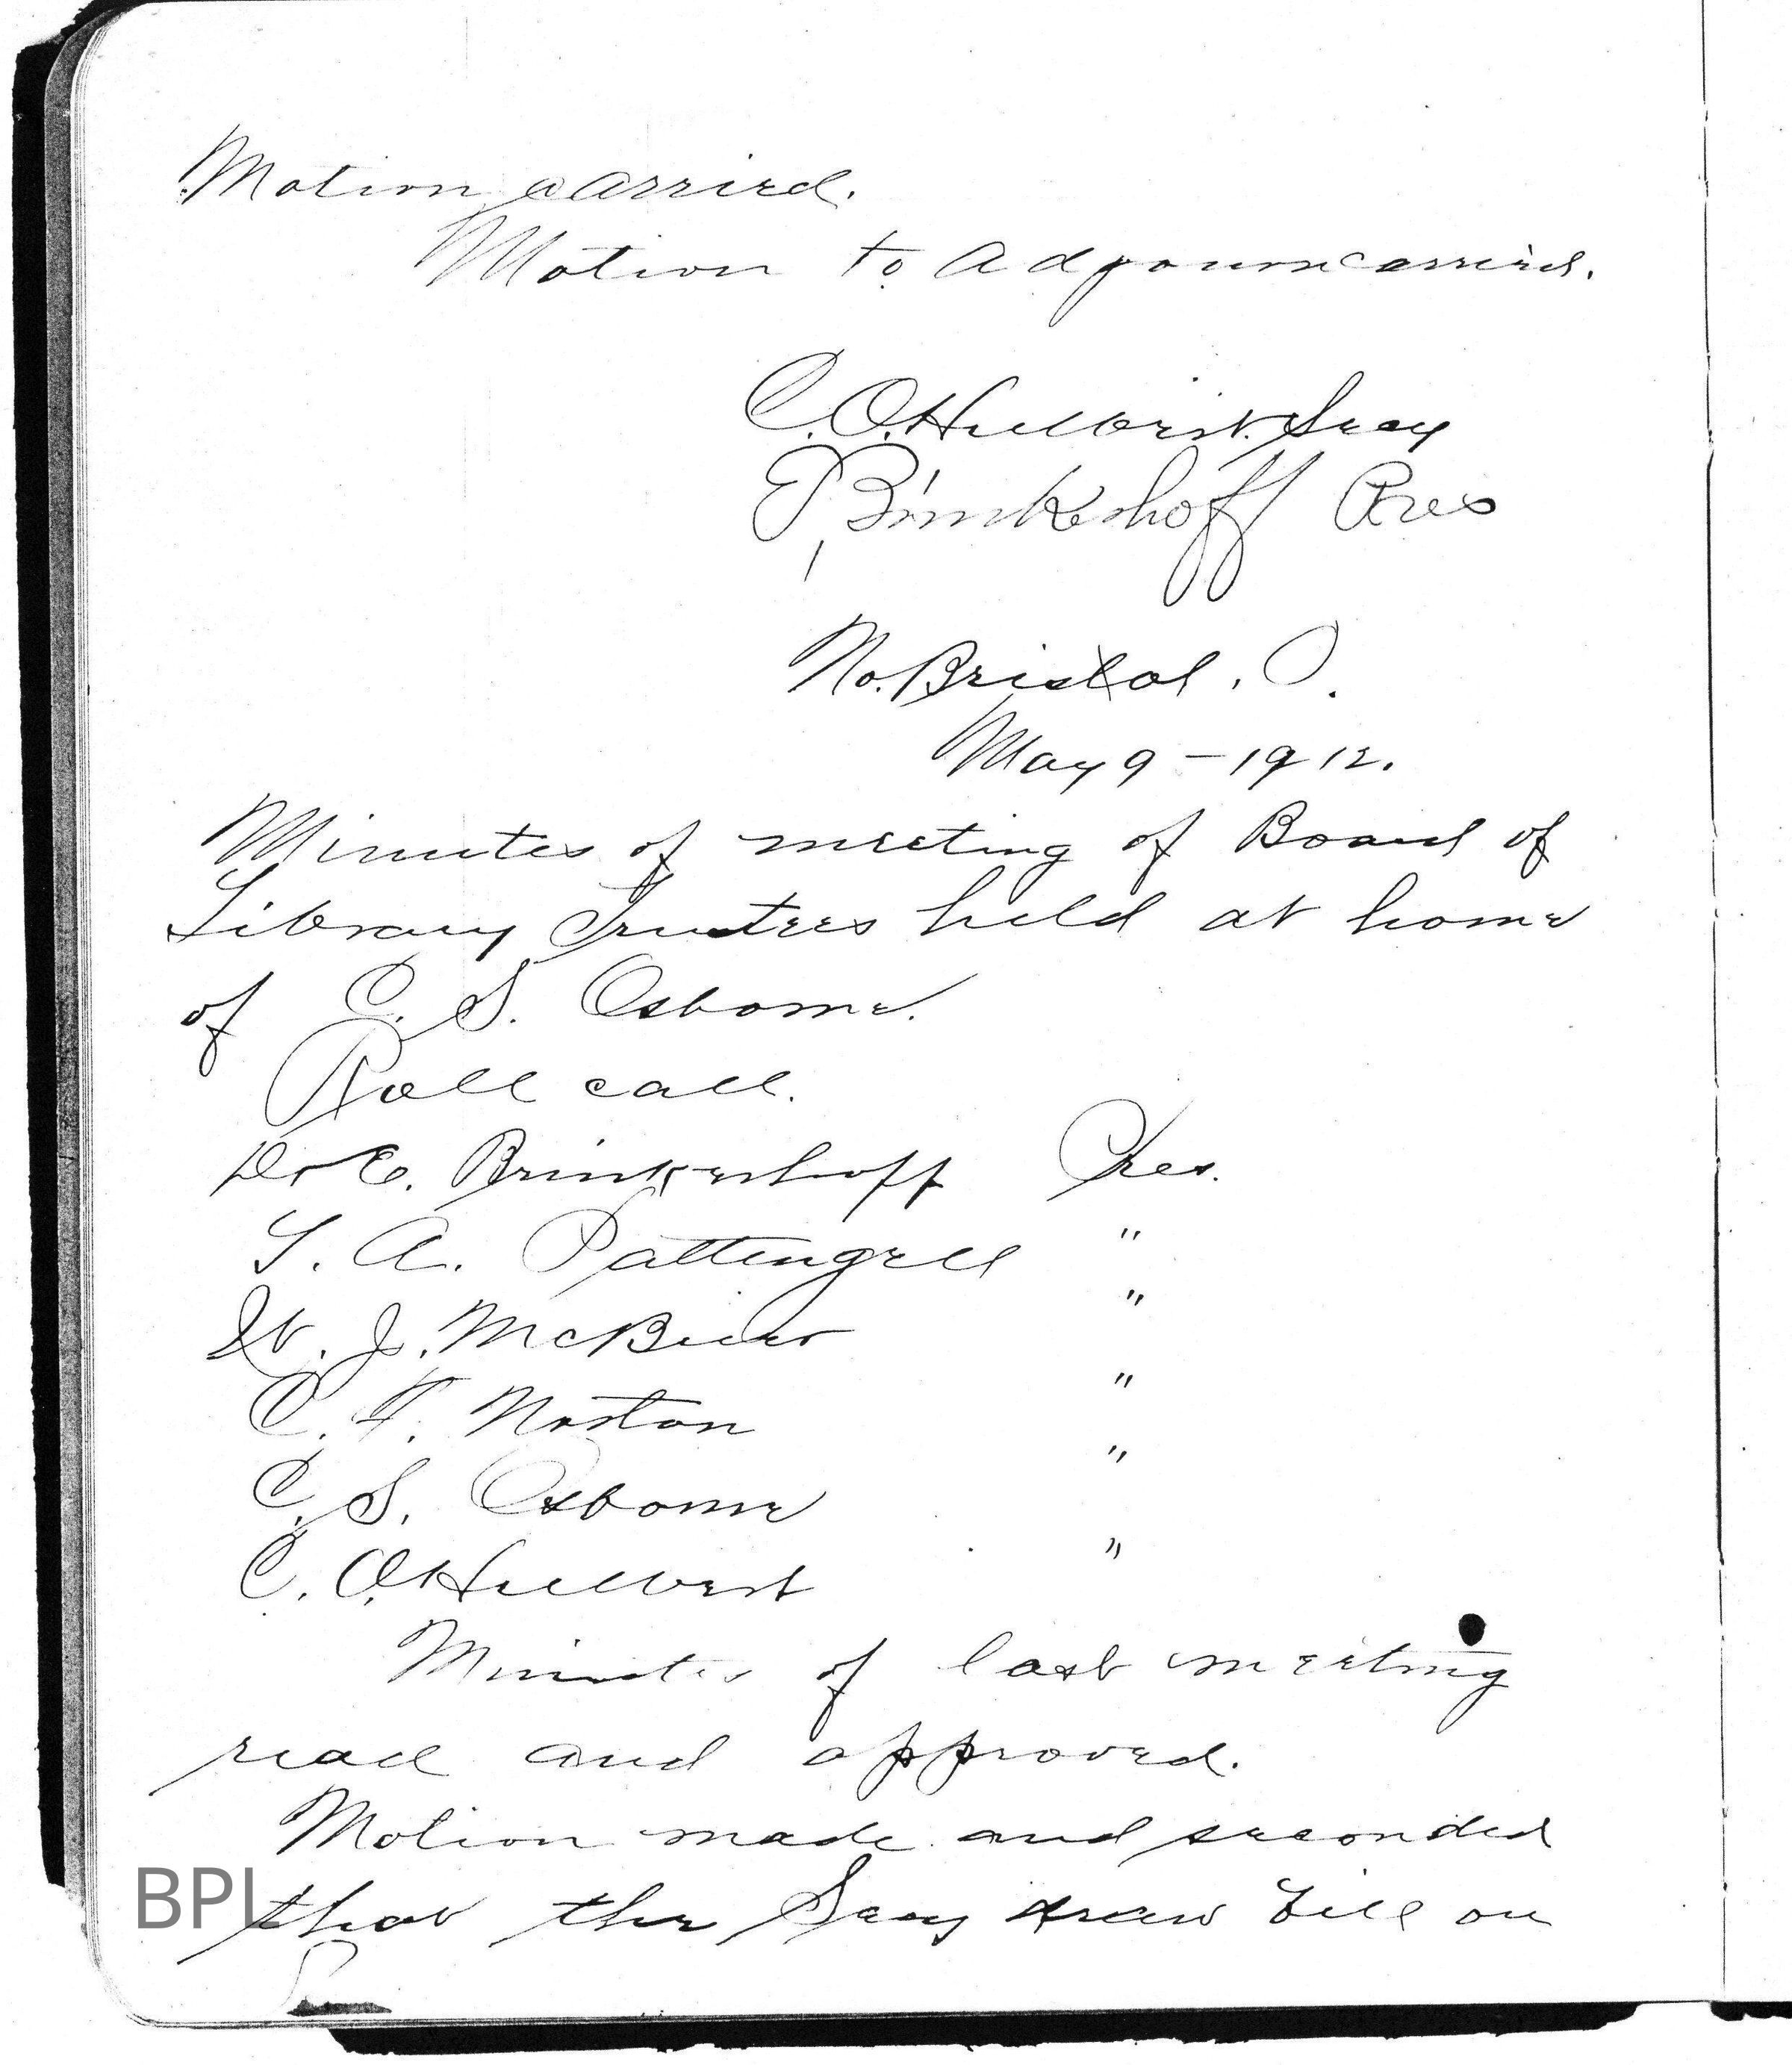 Motion carried.
Motion to adjourn carried.
C. O. Hulbert. Secy
E Brinkerhoff Pres
No. Bristol, O.
May 9 - 1912.
Minutes of meeting of Board of
Library Trustees held at home
of C. S. Osborne.
Roll call.
Dr E. Brinkerhoff Pres.
S. A. Pattengell "
W. J. "
C. F. Norton "
C. S. Osborne "
C. O. Hulbert "
Minutes of last meeting
read and approved.
Motion made and seconded
BPL
that the Secy draw bill on